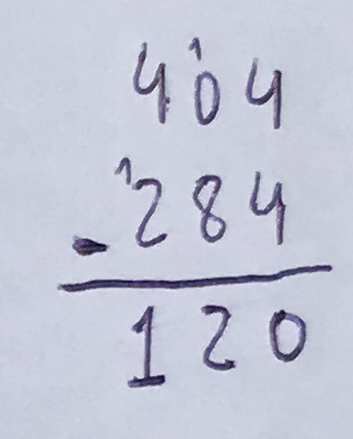 4 ¹0 4
- ¹2 8 4
1 2 0